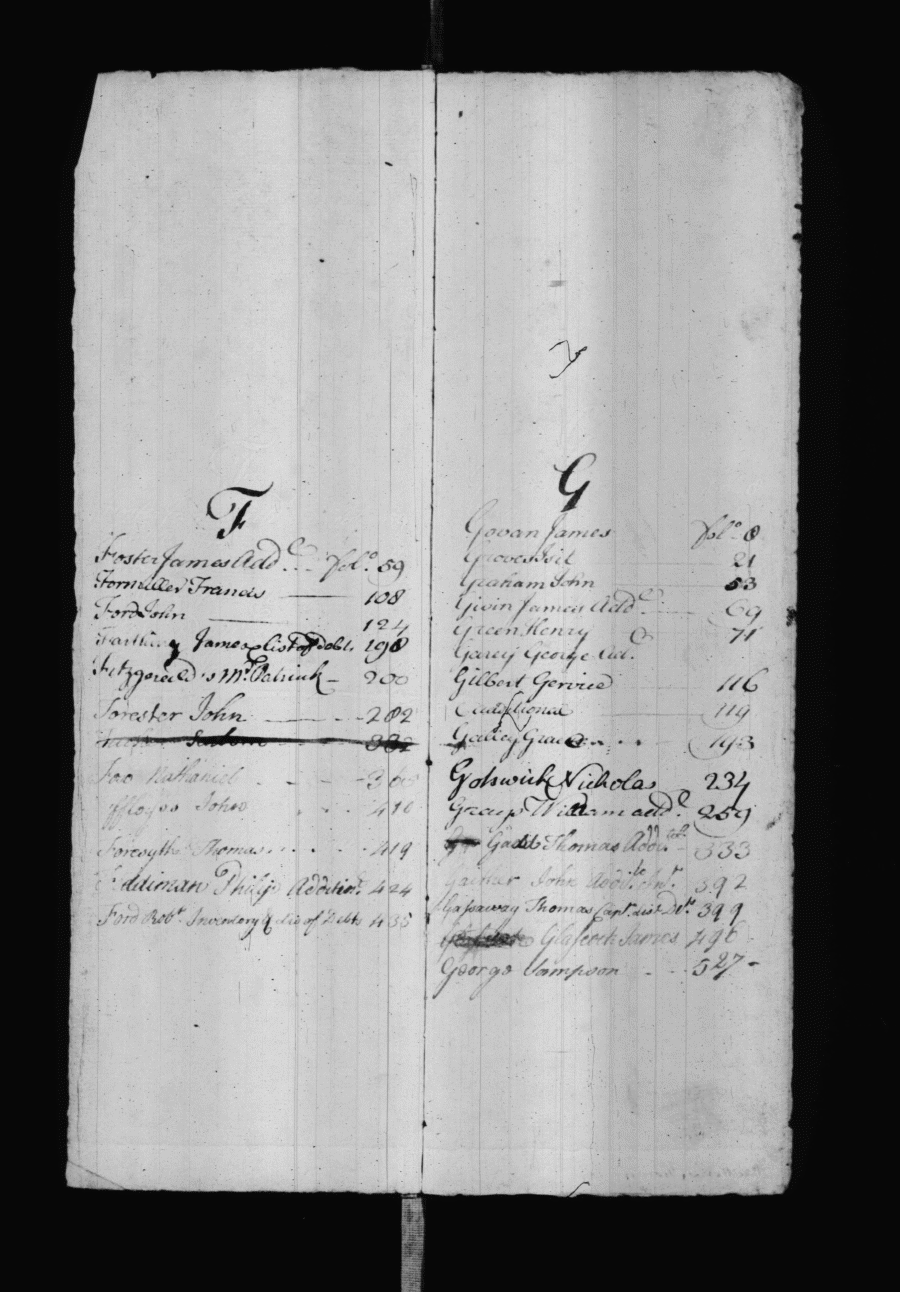 F
Foster James Add.l ... fol.o 59
Formiller Francis 108
Ford John 124
James List of debts 198
Fitzgerald's Mr. Patrick 200
Forester John 282
332
Fox Nathaniel
John 410
Forsyth Thomas 419
Philip Addition.l 424
Ford Rob.t Inventory & of Debts 435
G
Govan James fol.o 8
Groves 21
Graham John 53
Givin James Add.l 69
Green Henry 71
Garey George Ad.l
Gilbert Gervice 116
Additional 119
Galley Grace 193
Gotswick Nicholas 234
Grays William add.l 259
Gadd Thomas Add.l 333
John Add.l Inv.t 392
Gassaway Thomas Cap.t 399
Glascock James 496
George Sampson 527